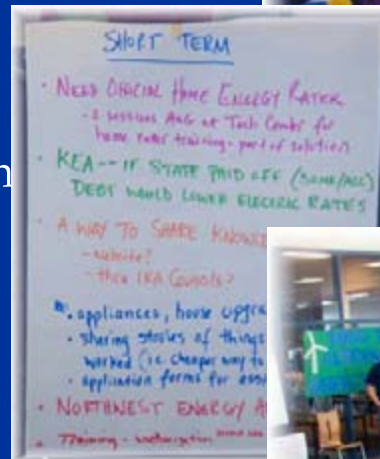 SHORT TERM
· NEED OFFICIAL HOME ENERGY RATER
- 2 sessions AUG at Tech Center for
home rater training - part of solution
· KEA -- IF STATE PAID OFF (SOME/ALL)
DEBT WOULD LOWER ELECTRIC RATES
· A WAY TO SHARE
- website?
- thru IRA Councils?
· appliances, house
· sharing stories of things
worked (i.e. cheaper way to
· application forms for
· NORTHWEST ENERGY
· Training - weatherization